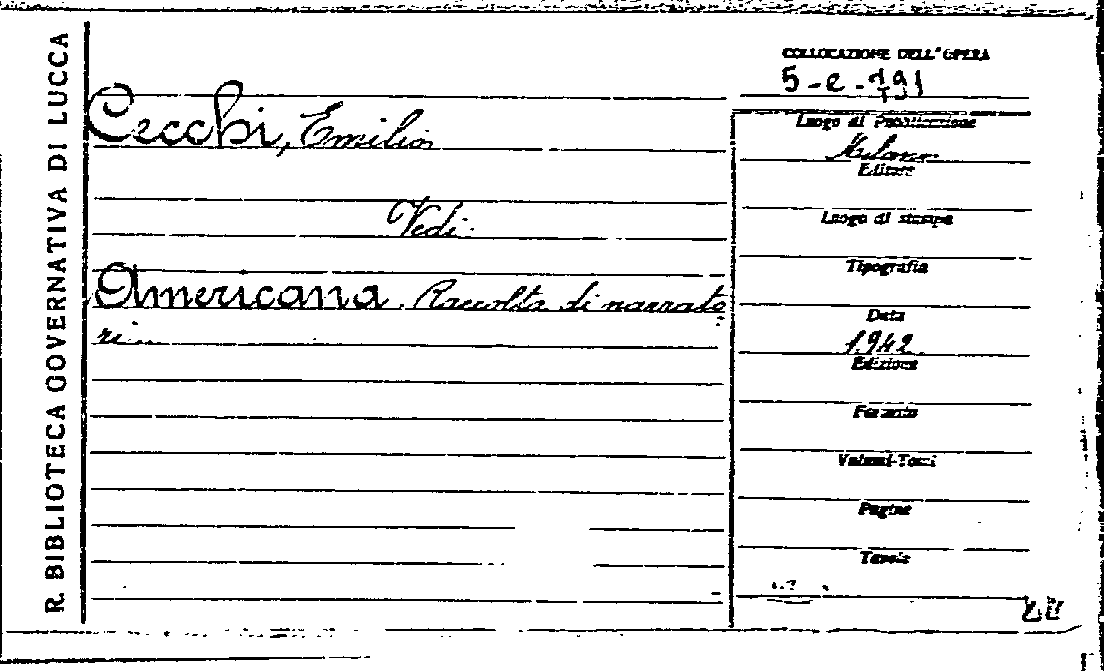 R. BIBLIOTECA GOVERNATIVA DI LUCCA
COLLOCAZIONE DELL'OPERA
5-e-191
Cecchi, Emilio
Vedi
Americana. Raccolta di narrato
ri...
Luogo di Pubblicazione
Milano
Editore
Luogo di stampa
Tipografia
Data
1942
Edizione
Formato
Volumi-Tomi
Pagine
Tavole